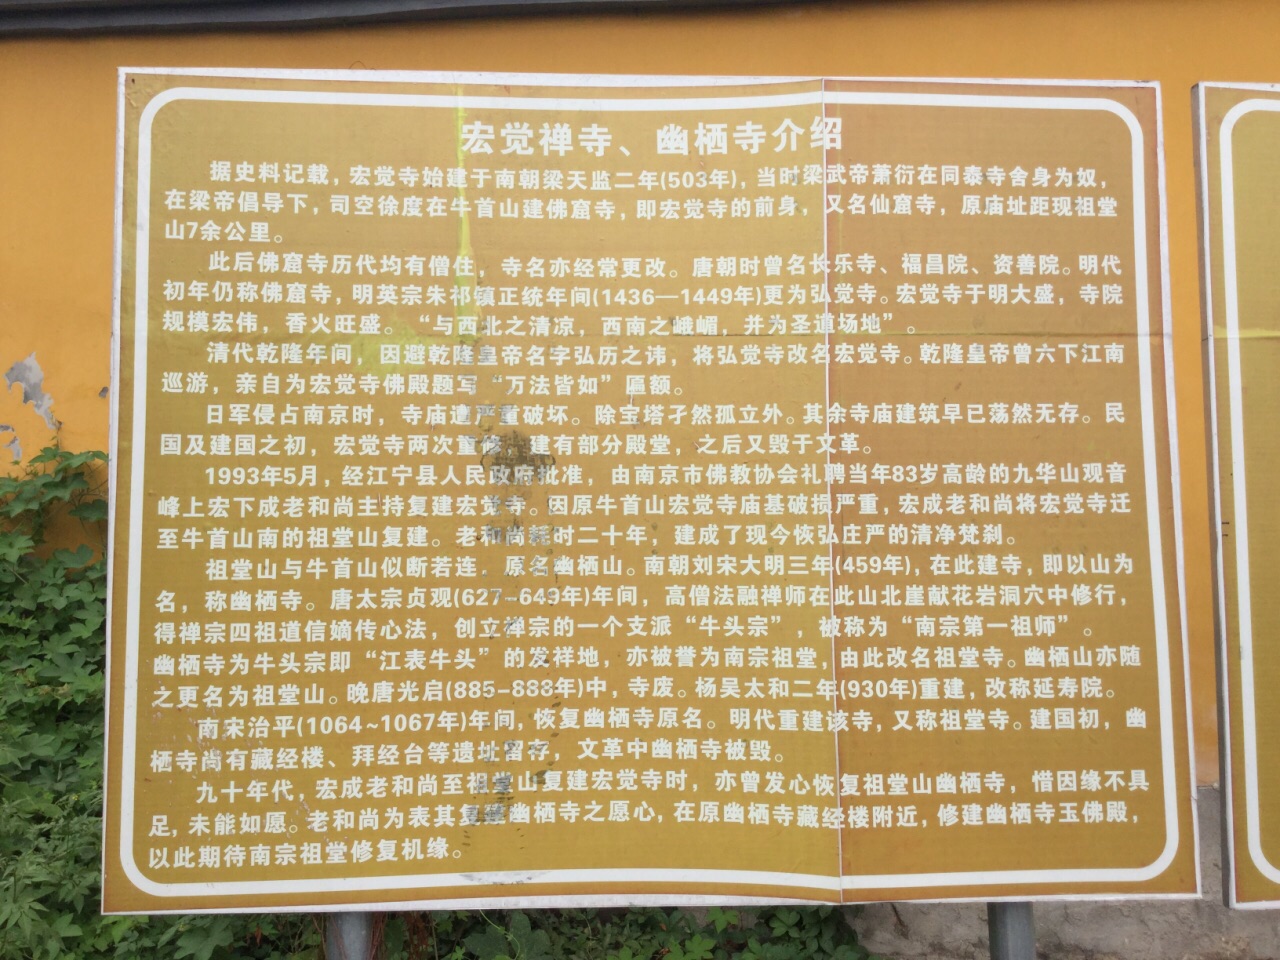 宏觉禅寺、幽栖寺介绍
据史料记载，宏觉寺始建于南朝梁天监二年(503年)，当时梁武帝萧衍在同泰寺舍身为奴，
在梁帝倡导下，司空徐度在牛首山建佛窟寺，即宏觉寺的前身，又名仙窟寺，原庙址距现祖堂
山7余公里。
此后佛窟寺历代均有僧住，寺名亦经常更改。唐朝时曾名长乐寺、福昌院、资善院。明代
初年仍称佛窟寺，明英宗朱祁镇正统年间(1436—1449年)更为弘觉寺。宏觉寺于明大盛，寺院
规模宏伟，香火旺盛。“与西北之清凉，西南之峨嵋，并为圣道场地”。
清代乾隆年间，因避乾隆皇帝名字弘历之讳，将弘觉寺改名宏觉寺。乾隆皇帝曾六下江南
巡游，亲自为宏觉寺佛殿题写“万法皆如”匾额。
日军侵占南京时，寺庙遭严重破坏。除宝塔孑然孤立外。其余寺庙建筑早已荡然无存。民
国及建国之初，宏觉寺两次重修，建有部分殿堂，之后又毁于文革。
1993年5月，经江宁县人民政府批准，由南京市佛教协会礼聘当年83岁高龄的九华山观音
峰上宏下成老和尚主持复建宏觉寺。因原牛首山宏觉寺庙基破损严重，宏成老和尚将宏觉寺迁
至牛首山南的祖堂山复建。老和尚耗时二十年，建成了现今恢弘庄严的清净梵刹。
祖堂山与牛首山似断若连，原名幽栖山。南朝刘宋大明三年(459年)，在此建寺，即以山为
名，称幽栖寺。唐太宗贞观(627-649年)年间，高僧法融禅师在此山北崖献花岩洞穴中修行，
得禅宗四祖道信嫡传心法，创立禅宗的一个支派“牛头宗”，被称为“南宗第一祖师”。
幽栖寺为牛头宗即“江表牛头”的发祥地，亦被誉为南宗祖堂，由此改名祖堂寺。幽栖山亦随
之更名为祖堂山。晚唐光启(885-888年)中，寺废。杨吴太和二年(930年)重建，改称延寿院。
南宋治平(1064~1067年)年间，恢复幽栖寺原名。明代重建该寺，又称祖堂寺。建国初，幽
栖寺尚有藏经楼、拜经台等遗址留存，文革中幽栖寺被毁。
九十年代，宏成老和尚至祖堂山复建宏觉寺时，亦曾发心恢复祖堂山幽栖寺，惜因缘不具
足，未能如愿。老和尚为表其复建幽栖寺之愿心，在原幽栖寺藏经楼附近，修建幽栖寺玉佛殿，
以此期待南宗祖堂修复机缘。